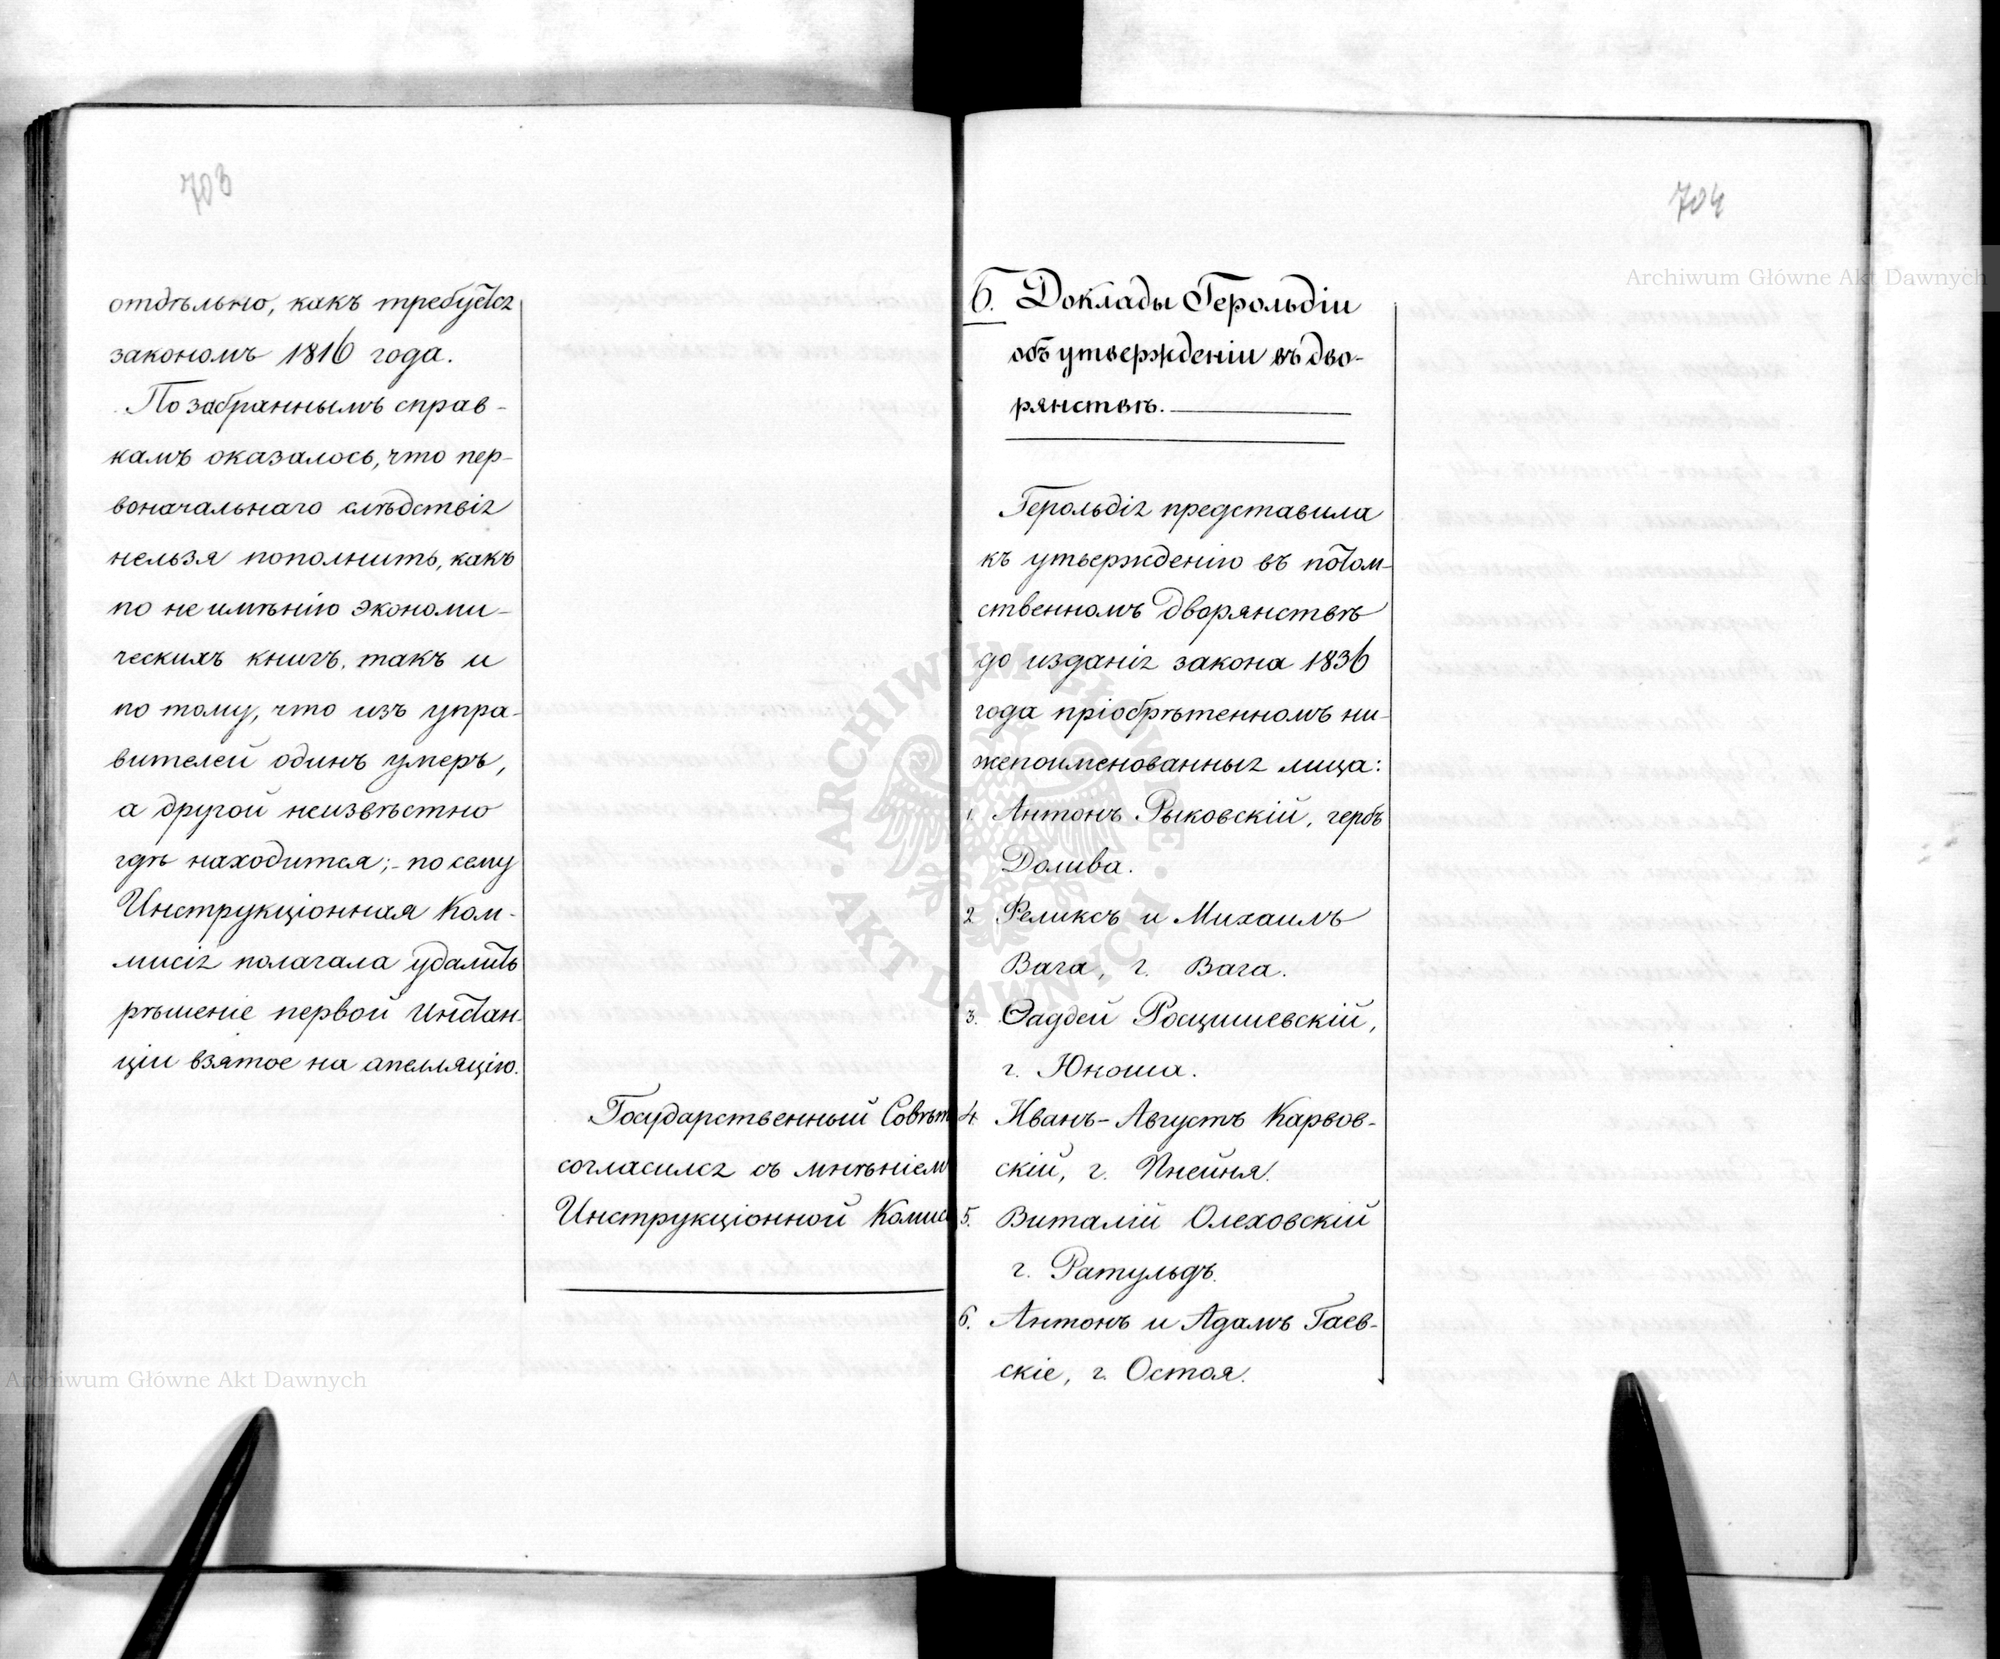 703
отдѣльно, какъ требуется
закономъ 1816 года.
По забраннымъ справ-
камъ оказалось, что пер-
воначальнаго слѣдствія
нельзя пополнить, какъ
по не имѣнію экономи-
ческихъ книгъ, такъ и
по тому, что изъ упра-
вителей одинъ умеръ,
а другой неизвѣстно
гдѣ находится; - по сему
Инструкціонная Ком-
мисія полагала удалить
рѣшеніе первой Инстан-
ціи взятое на апелляцію.
Государственный Совѣт
согласился съ мнѣніем
Инструкціонной Комис
704
6. Доклады Герольдіи
объ утвержденіи въ дво-
рянствѣ.
Герольдія представила
къ утвержденію въ потом-
ственномъ дворянствѣ
до изданія закона 1836
года пріобрѣтенномъ ни-
жепоименованныя лица:
1. Антонъ Рыковскій, гербъ
Долива.
2 Феликсъ и Михаилъ
Вага, г. Вага.
3. Ѳаддей Росцишевскій,
г. Юноша.
4. Иванъ-Августъ Карвов-
скій, г. Пнейня.
5. Виталій Олеховскій
г. Ратульдъ.
6. Антонъ и Адамъ Гаев-
скіе, г. Остоя.
Archiwum Główne Akt Dawnych
Archiwum Główne Akt Dawnych
ARCHIWUM GŁÓWNE AKT DAWNYCH